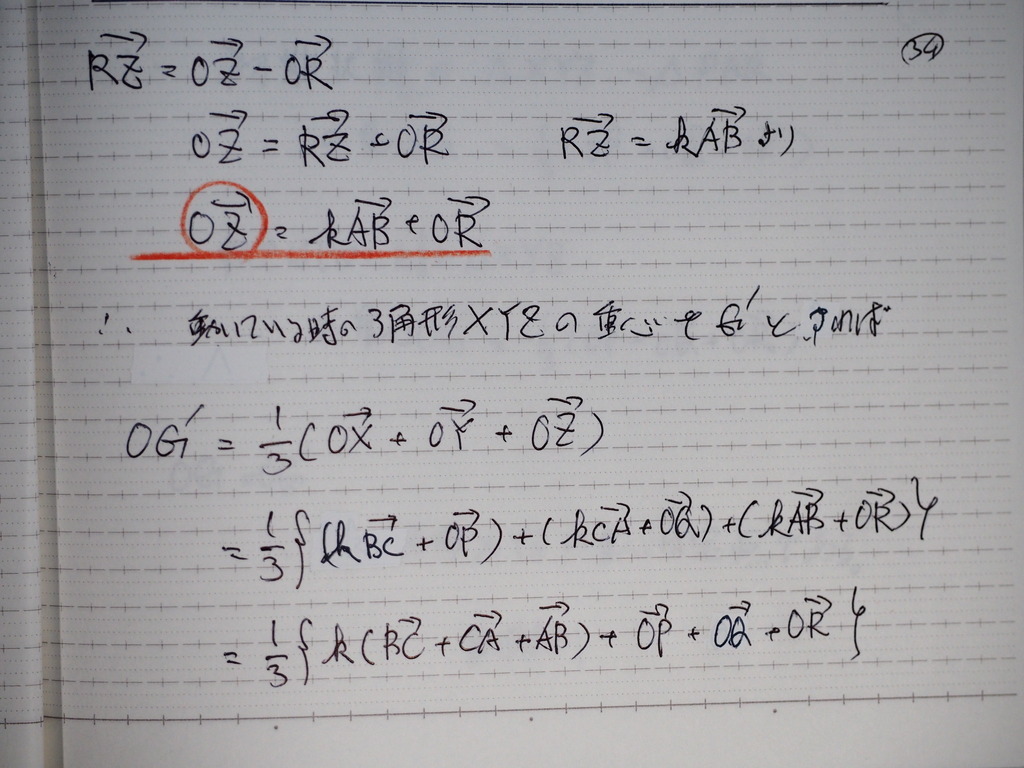 ㉞
RZ⃗ = OZ⃗ − OR⃗
OZ⃗ = RZ⃗ + OR⃗ RZ⃗ = kAB⃗ より
OZ⃗ = kAB⃗ + OR⃗
∴ 動いている時の3角形XYZの重心をG'とすれば
OG' = 1/3(OX⃗ + OY⃗ + OZ⃗)
= 1/3{(kBC⃗ + OP⃗) + (kCA⃗ + OQ⃗) + (kAB⃗ + OR⃗)}
= 1/3{k(BC⃗ + CA⃗ + AB⃗) + OP⃗ + OQ⃗ + OR⃗}